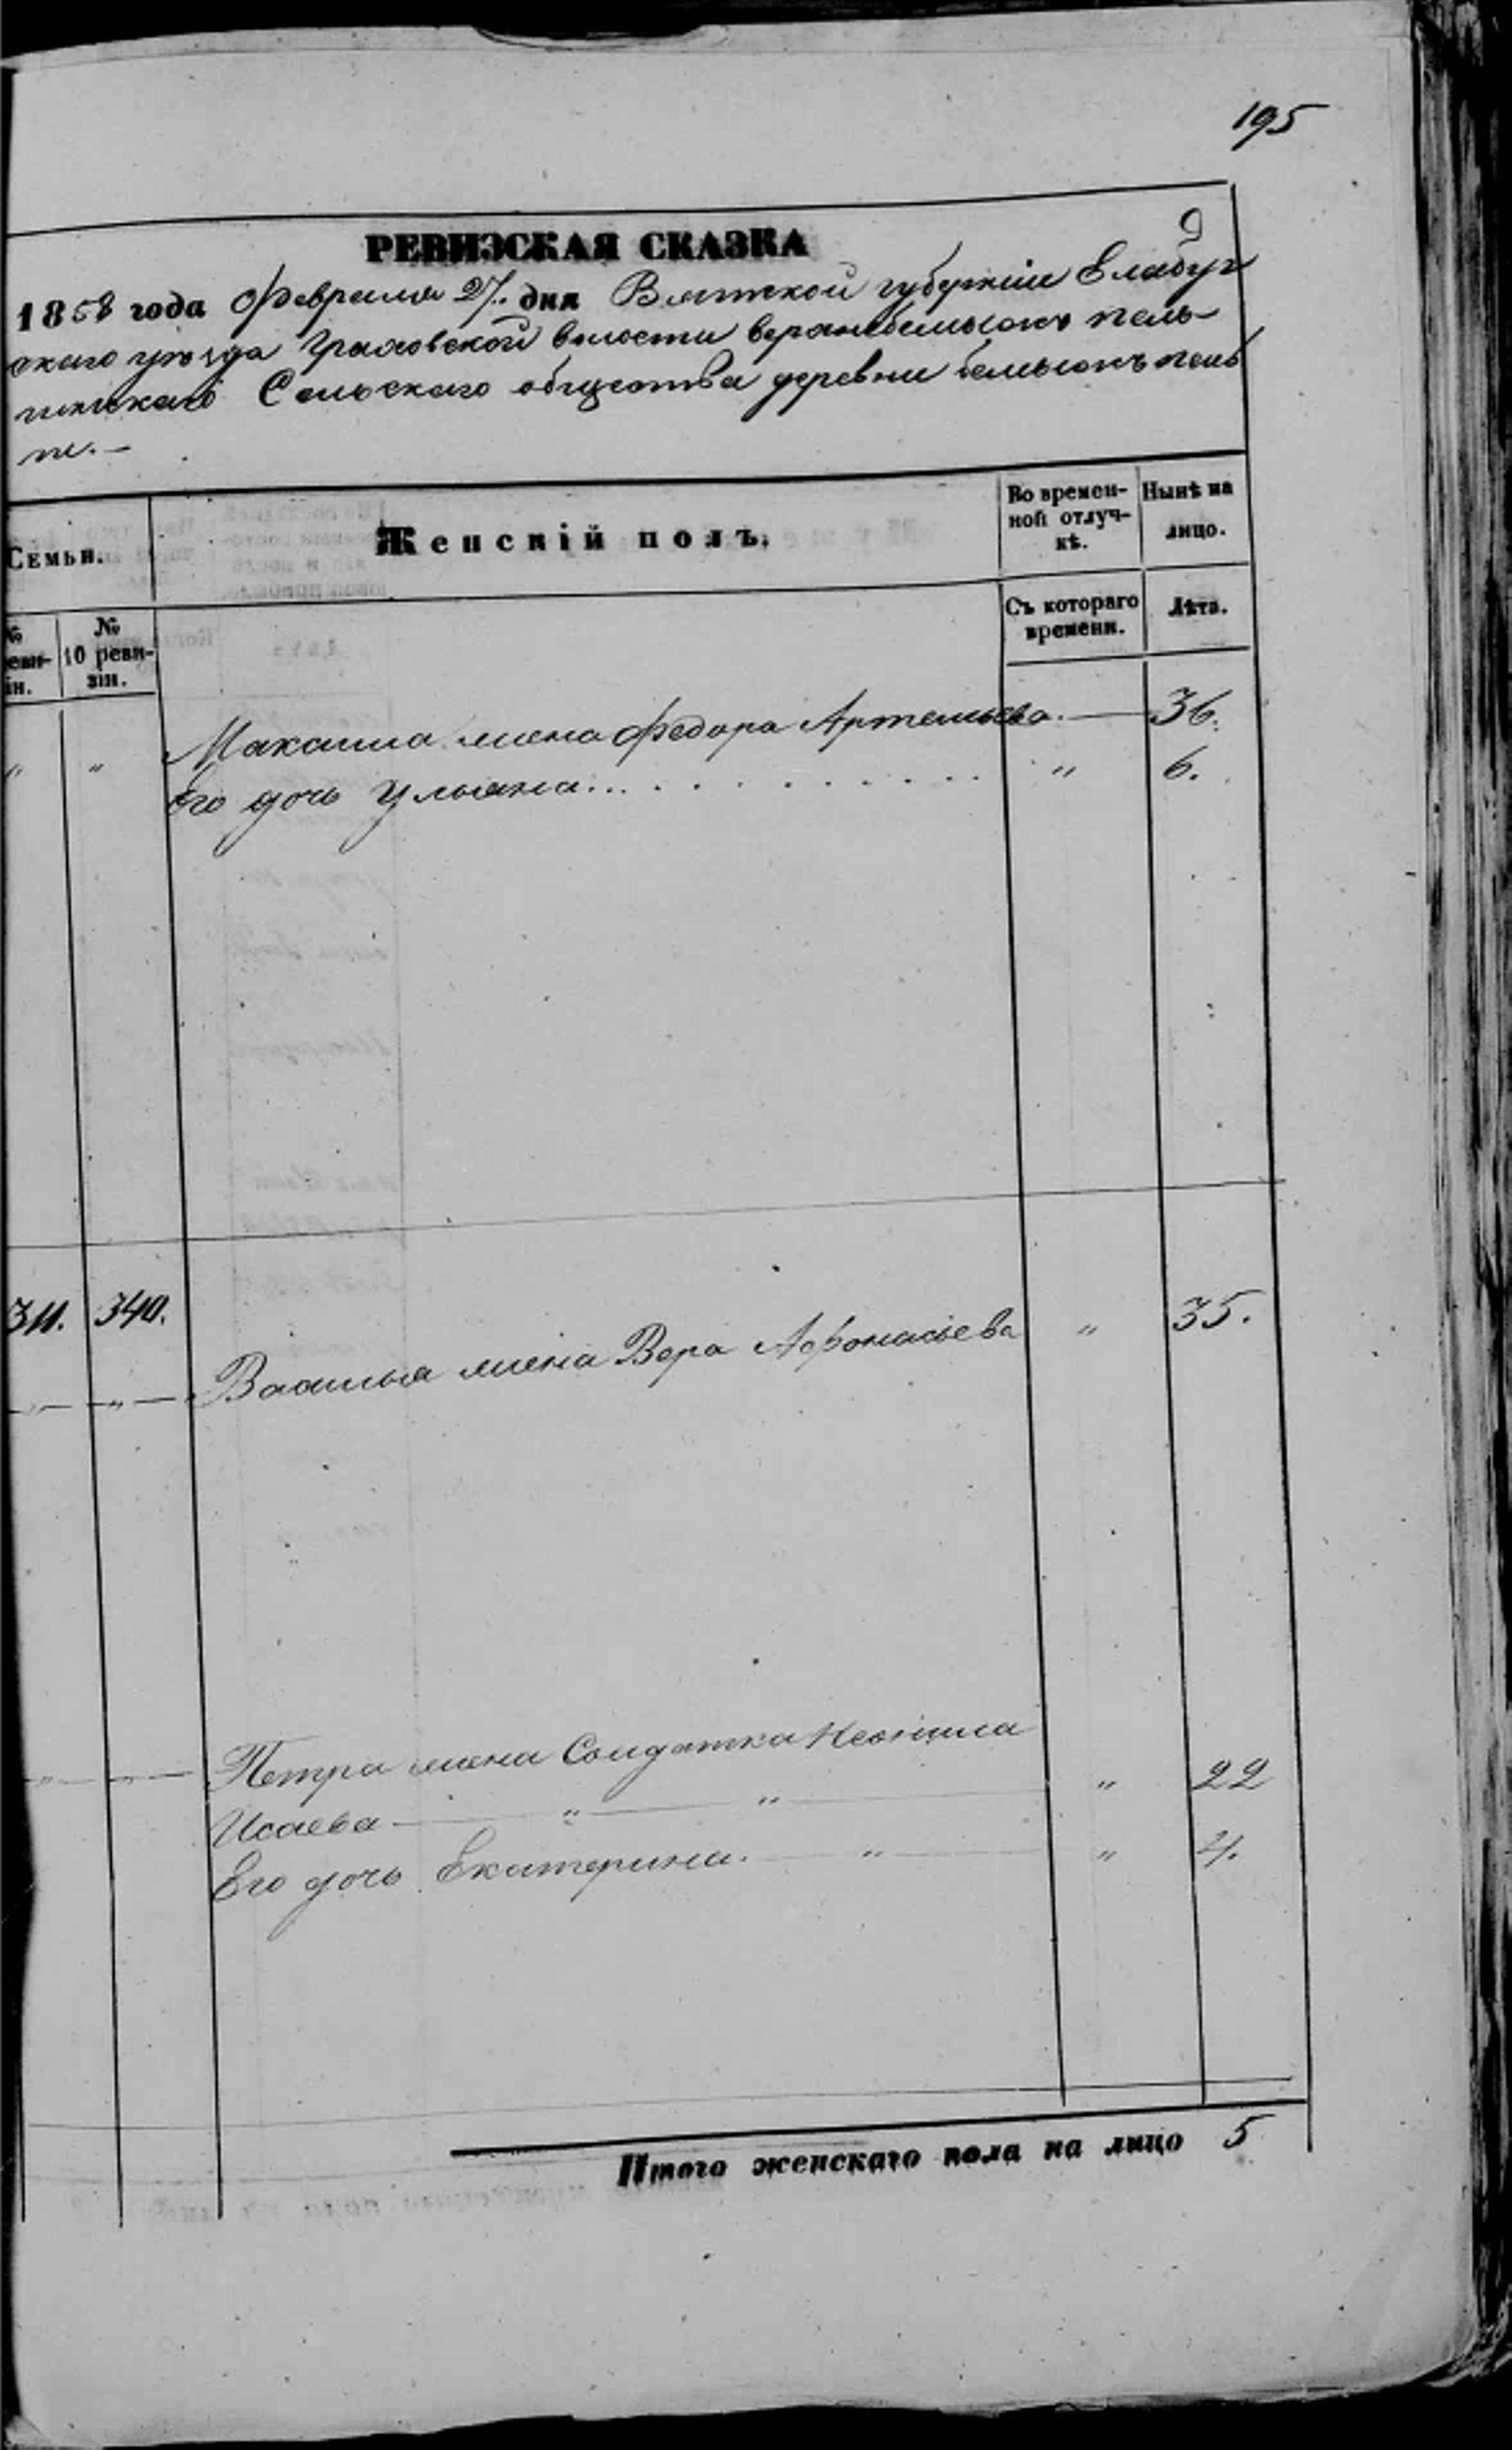 195
9
РЕВИЗСКАЯ СКАЗКА
1858 года Февраля 27. дня Вятской губерніи Елабуг
скаго уѣзда Граховской волости
Сельскаго общества деревни
Семьи.
Женскій полъ.
Во времен-
ной отлуч-
кѣ.
Нынѣ на
лицо.
№
реви-
зіи.
№
10 реви-
зіи.
Съ котораго
времени.
Лѣта.
" " Максима жена Федора Артемьева. — 36.
Его дочь Ульяна . . . . . . . . . . . " 6.
311. 340.
— " — " — Василья жена Вера Афонасьева " 35.
— " — " — Петра жена Солдатка Неонила
Исаева — " — " — " 22
Его дочь Екатерина. — " — " 4.
Итого женскаго пола на лицо 5